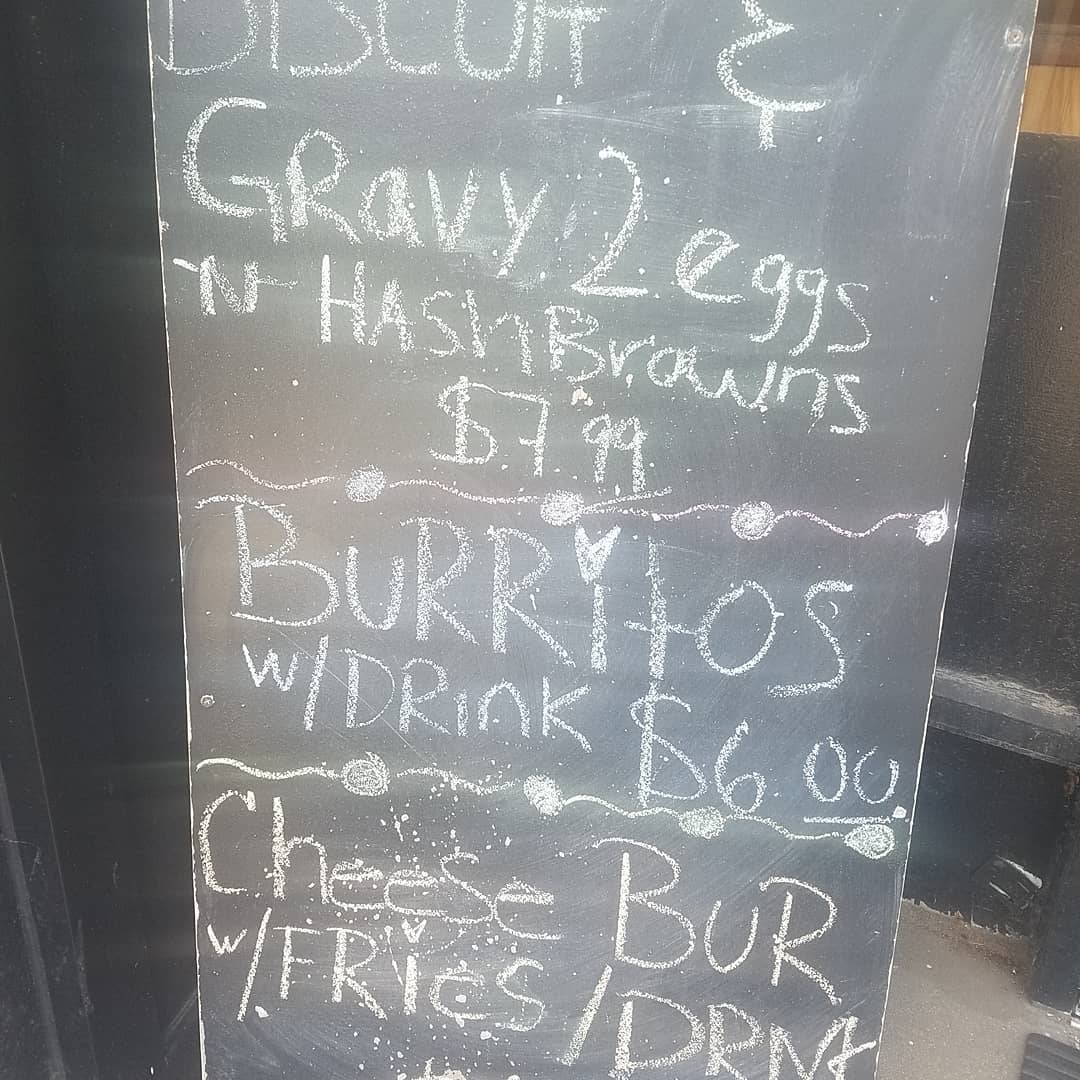 BISCUIT &
GRavy 2 eggs
-N- HASHBrowns
$7.99
BURRiTOS
w/DRink $6.00
Cheese BUR
w/FRieS /DRNK